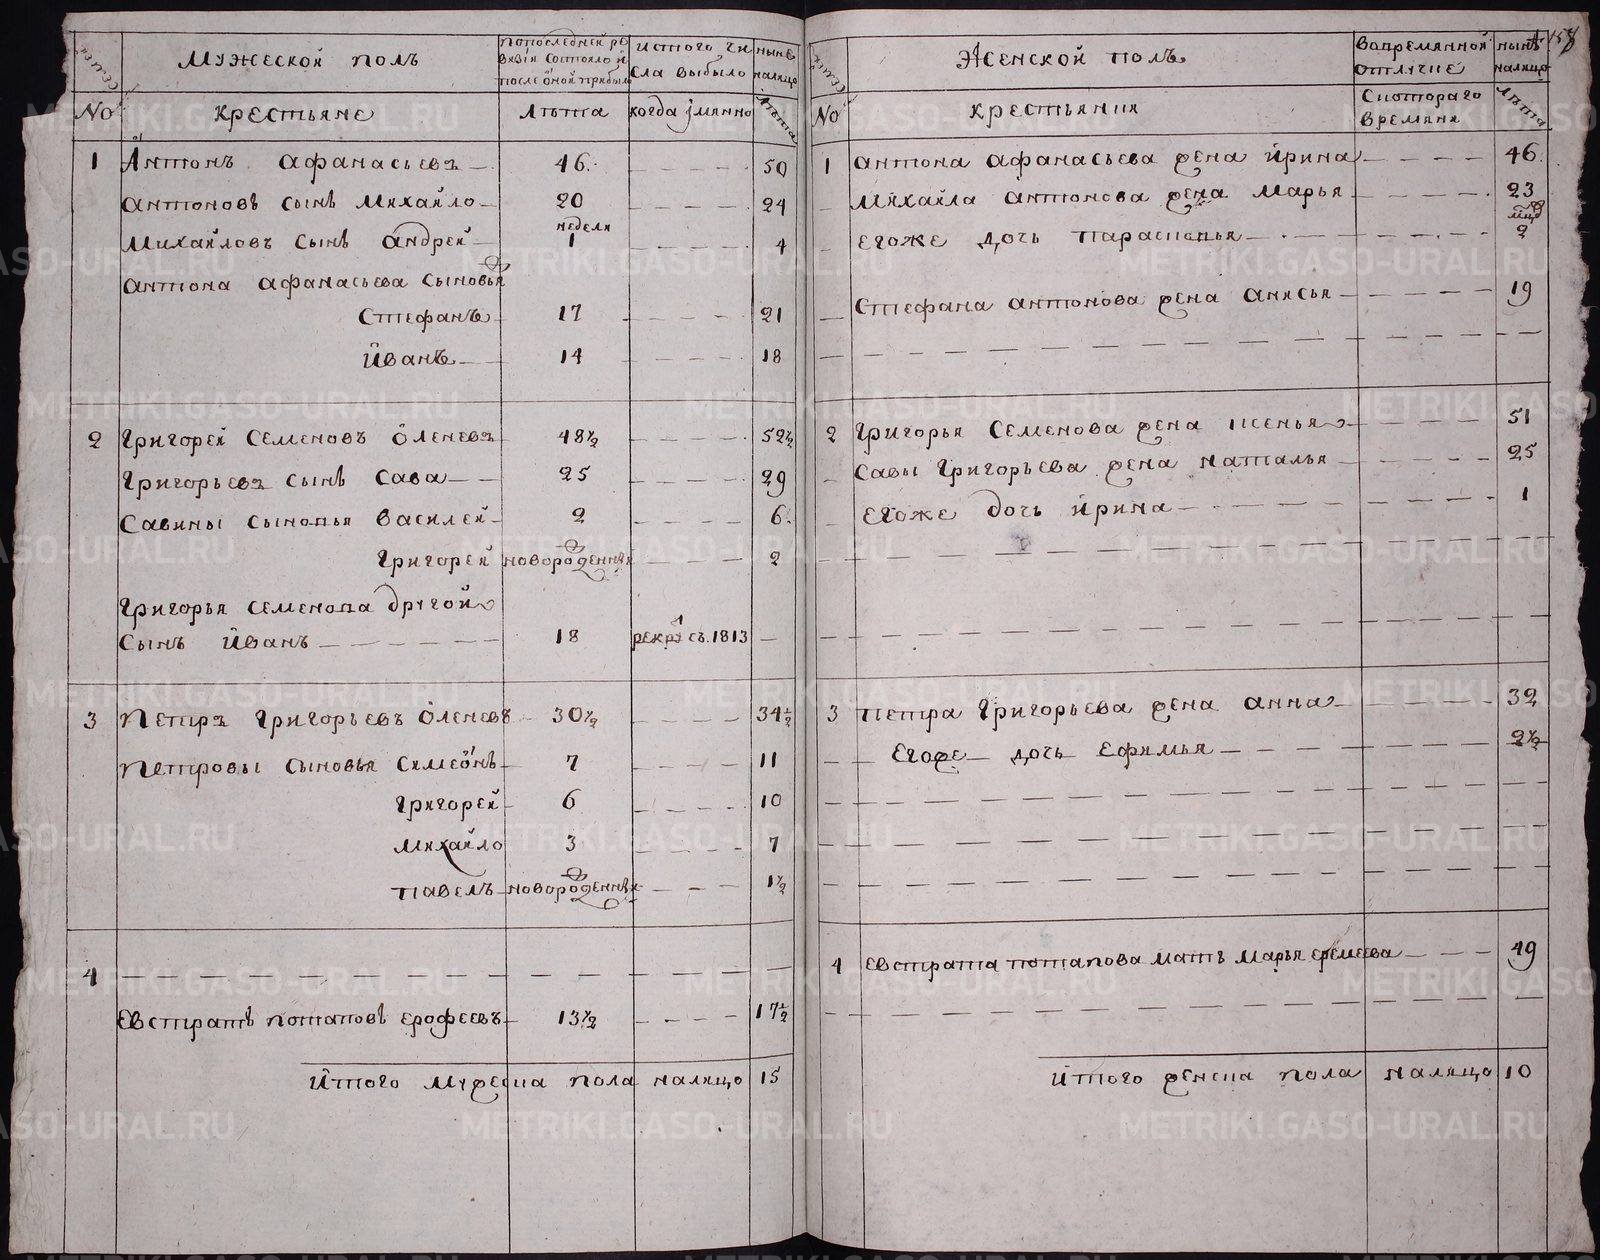 Мужеской полъ
По последней ре
визіи состояло и
после оной прибыло
Из того чи
сла выбыло
Ныне
налицо
No
Крестьяне
Лѣта
когда імянно
Лѣта
1 Антонъ Афанасьевъ 46. 50
Антоновъ сынъ Михайло 20 24
неделя
Михайловъ сынъ Андрей 1 4
Антона Афанасьева сыновья
Стефанъ 17 21
Иванъ 14 18
2 Григорей Семеновъ Оленевъ 48½ 52½
Григорьевъ сынъ Сава 25 29
Савины сыновья Василей 2 6.
Григорей новорожденный 2
Григорья Семенова другой
сынъ Иванъ 18 рекрутъ съ. 1813
3 Петръ Григорьевъ Оленевъ 30½ 34½
Петровы сыновья Симеонъ 7 11
Григорей 6 10
Михайло 3 7
Павелъ новорожденный 1½
4
Евстратъ Потаповъ Ерофеевъ 13½ 17½
Итого мужеска пола налицо 15
Женской полъ
Во временной
отлучке
Нынѣ
налицо
No
Крестьянки
С котораго
времяни
Лѣта
1 Антона Афанасьева жена Ирина 46.
Михайла Антонова жена Марья 23
мцъ
Егоже дочь Парасковья 2
Стефана Антонова жена Анисья 19
2 Григорья Семенова жена Ксенья 51
Савы Григорьева жена Наталья 25
Егоже дочь Ирина 1
3 Петра Григорьева жена Анна 32
Егоже дочь Ефимья 2½
4 Евстрата Потапова мать Марья Еремеева 49
Итого женска пола налицо 10
METRIKI.GASO-URAL.RU